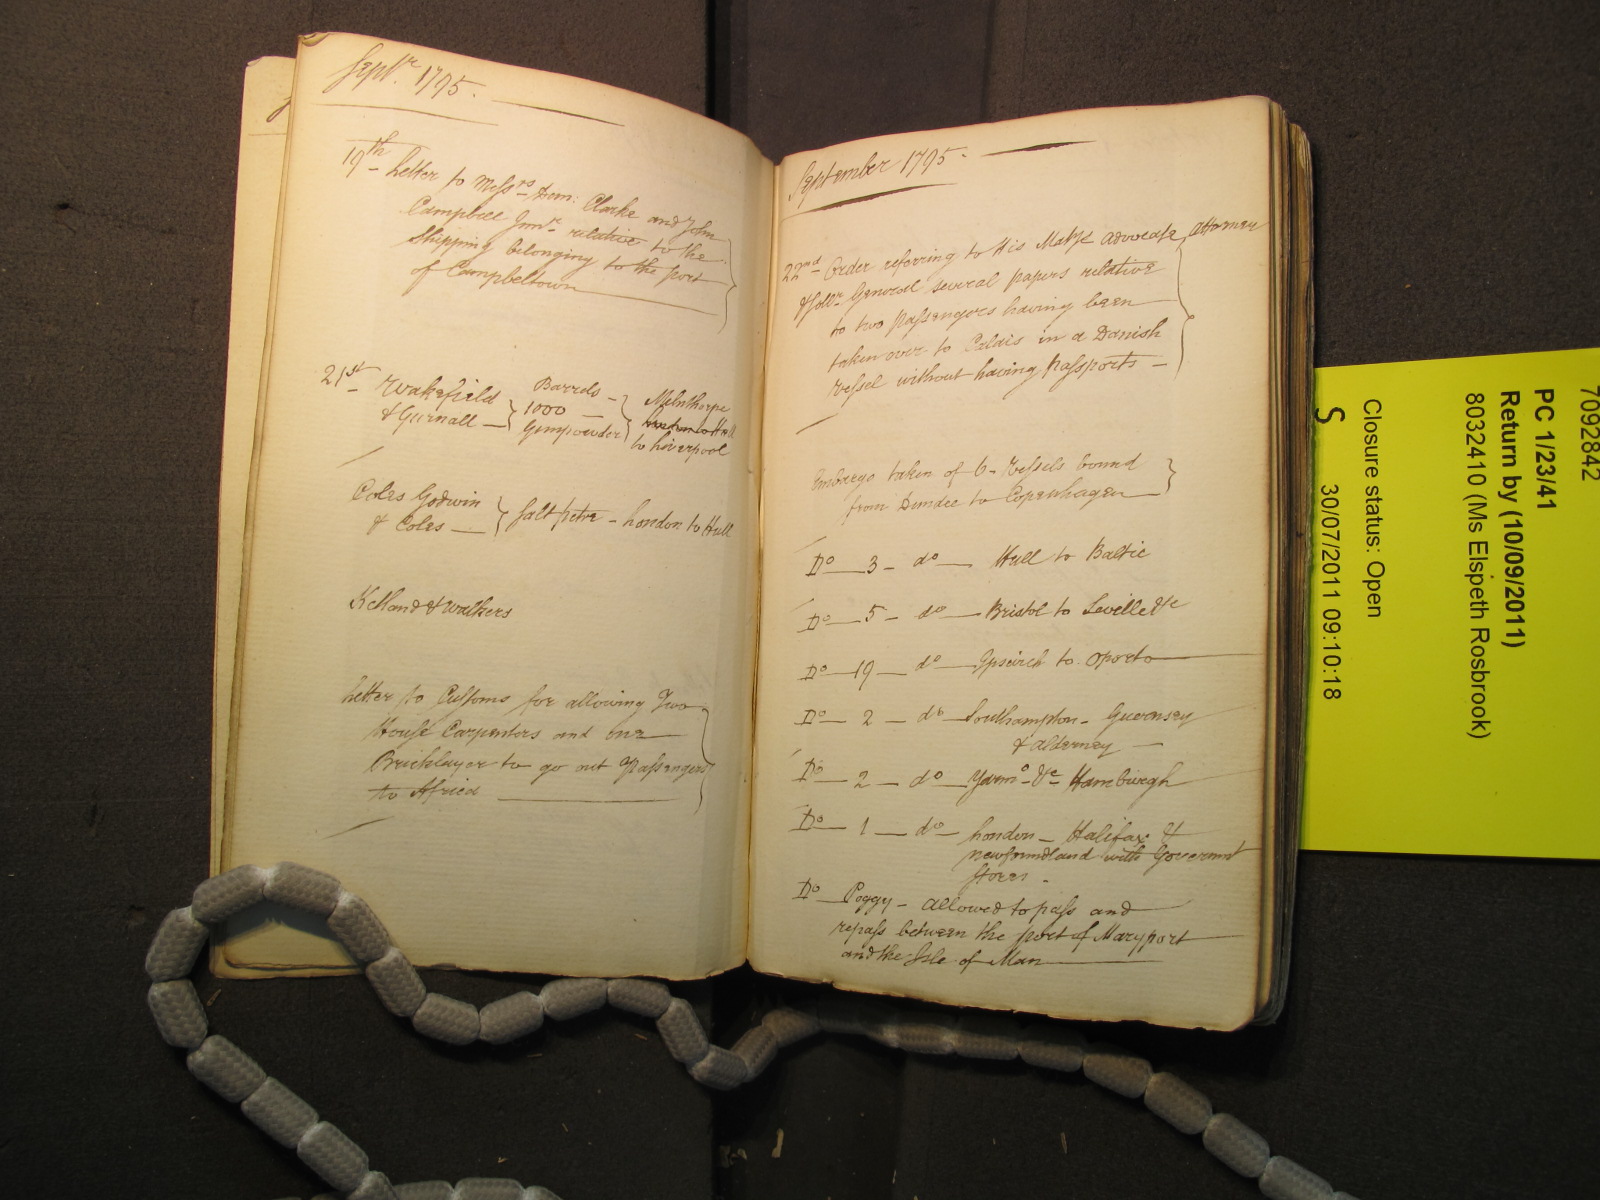 Septr. 1795.
19th Letter to Messrs Dun: Clarke and John
Campbell Junr. relative to the
Shipping belonging to the port
of Campbeltown
21st Wakefield & Gurnall } Barrels 1000 Gunpowder } Milnthorpe
to Liverpool
Coles Godwin
& Coles } Salt petre - London to Hull
Kelland & Walkers
Letter to Customs for allowing Two
House Carpenters and one
Bricklayer to go out Passengers
to Africa
September 1795.
22nd Order referring to His Majts Advocate, Attorney
& Sollr. General several papers relative
to two Passengers having been
taken over to Calais in a Danish
Vessel without having Passports
Embargo taken of 6 - Vessels bound
from Dundee to Copenhagen
Do 3 - do Hull to Baltic
Do 5 - do Bristol to Seville &c
Do 19 do Ipswich to Oporto
Do 2 do Southampton - Guernsey
& Alderney
Do 2 do Yarmo. &c Hamburgh
Do 1 do London - Halifax &
Newfoundland with Governmt
Stores.
Do Peggy - allowed to pass and
repass between the port of Maryport
and the Isle of Man
7092842
PC 1/23/41
Return by (10/09/2011)
8032410 (Ms Elspeth Rosbrook)
Closure status: Open
S 30/07/2011 09:10:18